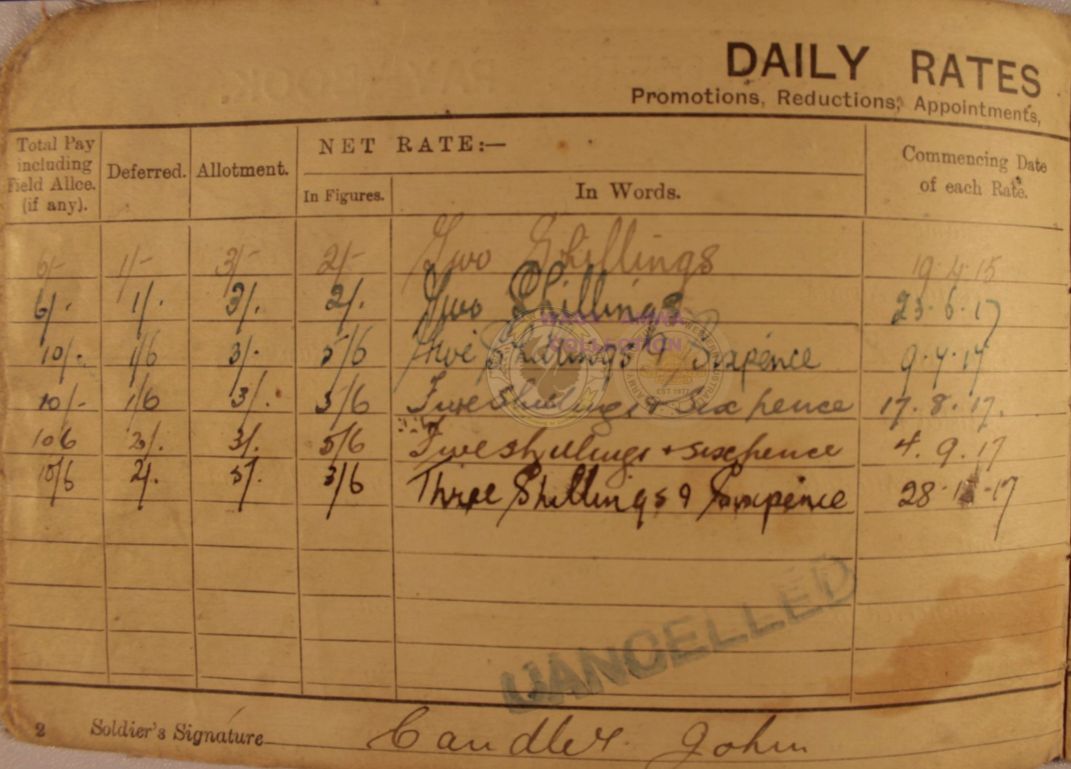 DAILY RATES
Promotions, Reductions, Appointments,
Total Pay including Field Allce. (if any). Deferred. Allotment. NET RATE:— In Figures. In Words. Commencing Date of each Rate.
6/- 1/- 3/- 2/- Two Shillings 19.4.15
6/- 1/. 3/. 2/. Two Shillings 23.6.17
10/- 1/6 3/- 5/6 Five Shillings & Sixpence
10/- 1/6 3/. 5/6 Five shillings & Six pence 17.8.17.
10 6 2/. 3/. 5/6 Five shillings + sixpence 4.9.17
10/6 2/. 5/. 3/6 Three Shillings & Sixpence 28
COLLECTION
CANCELLED
2 Soldier's Signature Candler John